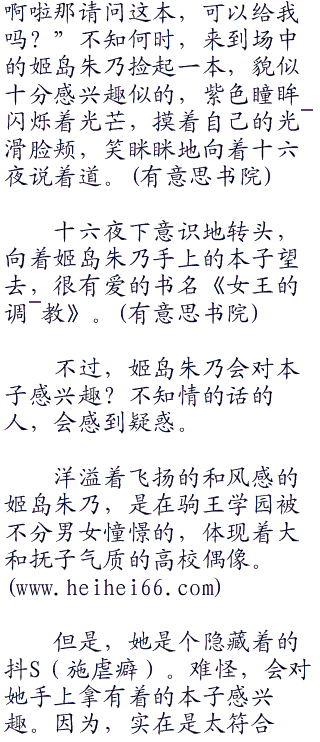 啊啦那请问这本，可以给我
吗？”不知何时，来到场中
的姬岛朱乃捡起一本，貌似
十分感兴趣似的，紫色瞳眸
闪烁着光芒，摸着自己的光¯
滑脸颊，笑眯眯地向着十六
夜说着道。(有意思书院)
十六夜下意识地转头，
向着姬岛朱乃手上的本子望
去，很有爱的书名《女王的
调¯教》。(有意思书院)
不过，姬岛朱乃会对本
子感兴趣？不知情的话的
人，会感到疑惑。
洋溢着飞扬的和风感的
姬岛朱乃，是在驹王学园被
不分男女憧憬的，体现着大
和抚子气质的高校偶像。
(www.heihei66.com)
但是，她是个隐藏着的
抖S（施虐癖）。难怪，会对
她手上拿有着的本子感兴
趣。因为，实在是太符合